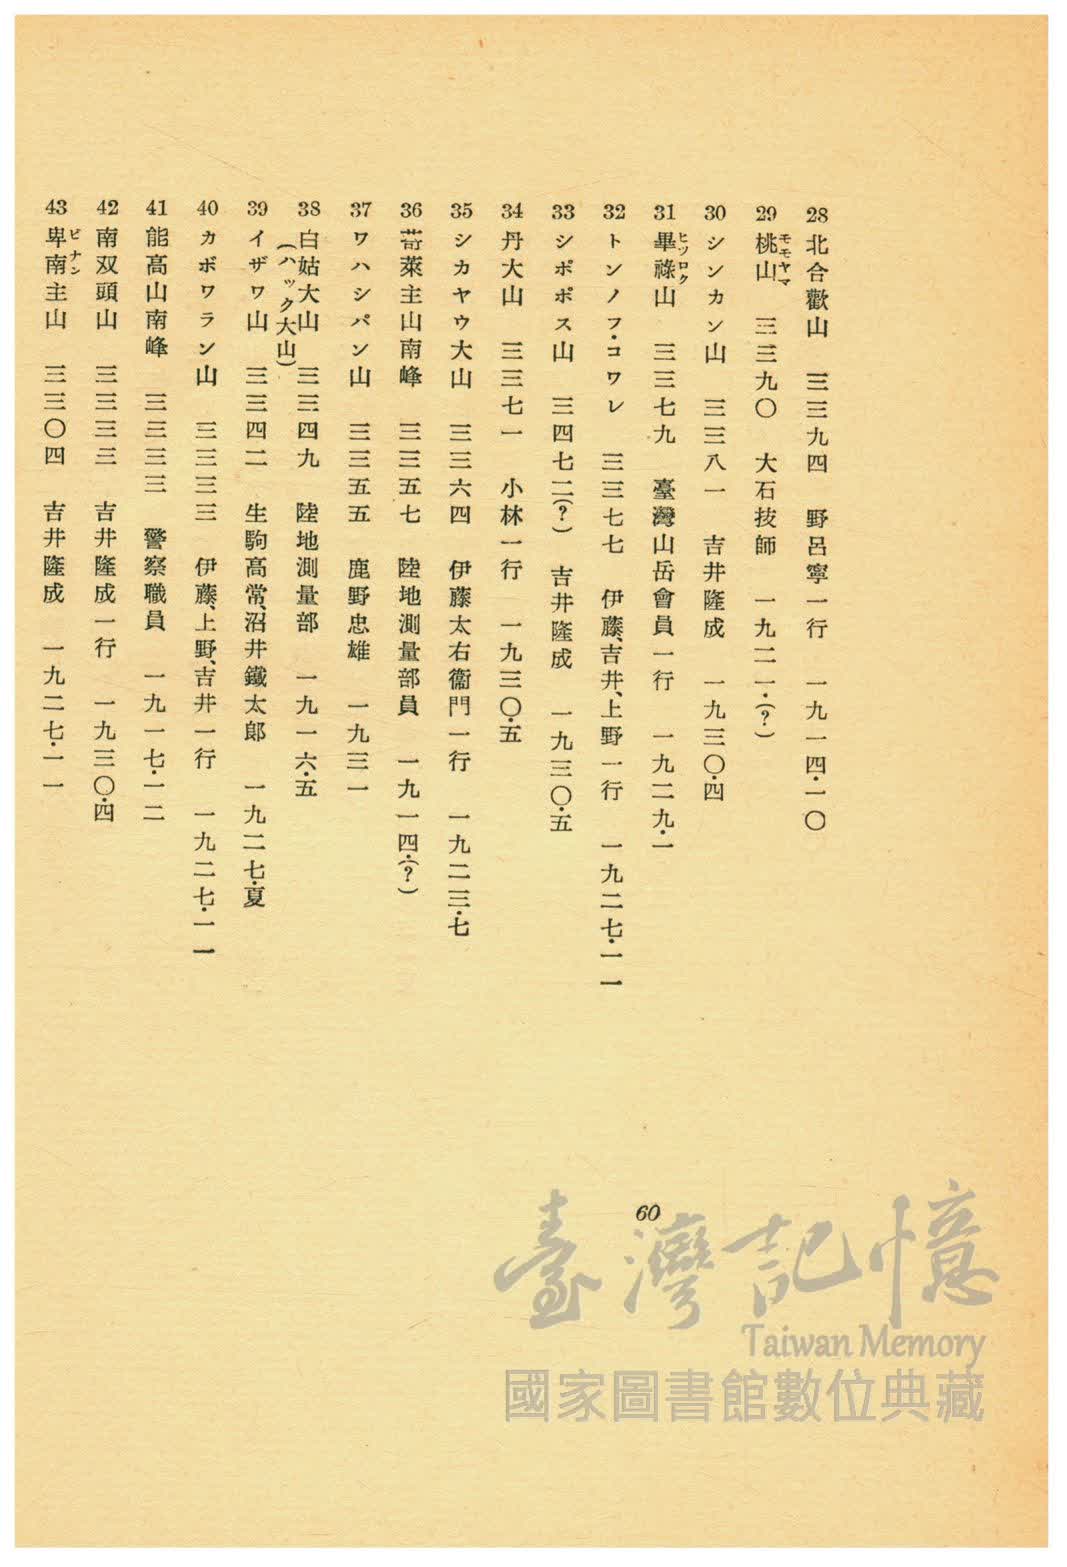 28 北合歡山 三三九四 野呂寧一行 一九一四・一〇
29 桃山 三三九〇 大石技師 一九二一・(?)
モモヤマ
30 シンカン山 三三八一 吉井隆成 一九三〇・四
31 畢祿山 三三七九 臺灣山岳會員一行 一九二九・一
ヒソロク
32 トンノフ・コワレ 三三七七 伊藤、吉井、上野一行 一九二七・一一
33 シポポス山 三四七二(?) 吉井隆成 一九三〇・五
34 丹大山 三三七一 小林一行 一九三〇・五
35 シカヤウ大山 三三六四 伊藤太右衞門一行 一九二三・七
36 萊主山南峰 三三五七 陸地測量部員 一九一四・(?)
37 ワハシパン山 三三五五 鹿野忠雄 一九三一
38 白姑大山 三三四九 陸地測量部 一九一六・五
(ハック大山)
39 イザワ山 三三四二 生駒高常、沼井鐵太郞 一九二七・夏
40 カボワラン山 三三三三 伊藤、上野、吉井一行 一九二七・一一
41 能高山南峰 三三三三 警察職員 一九一七・一二
42 南双頭山 三三三三 吉井隆成一行 一九三〇・四
43 卑南主山 三三〇四 吉井隆成 一九二七・一一
ピナン
60
臺灣記憶
Taiwan Memory
國家圖書館數位典藏